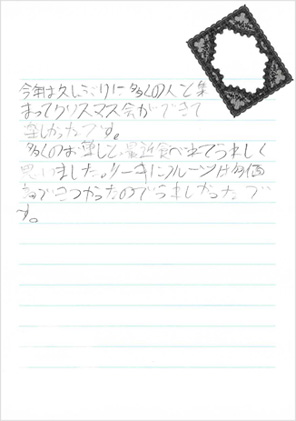 今年は久しぶりに多くの人と集
まってクリスマス会ができて
楽しかったです。
多くのお菓しと、最近食べれてうれしく
思いました。ケーキにフルーツは高価
でうれしかったで
す。